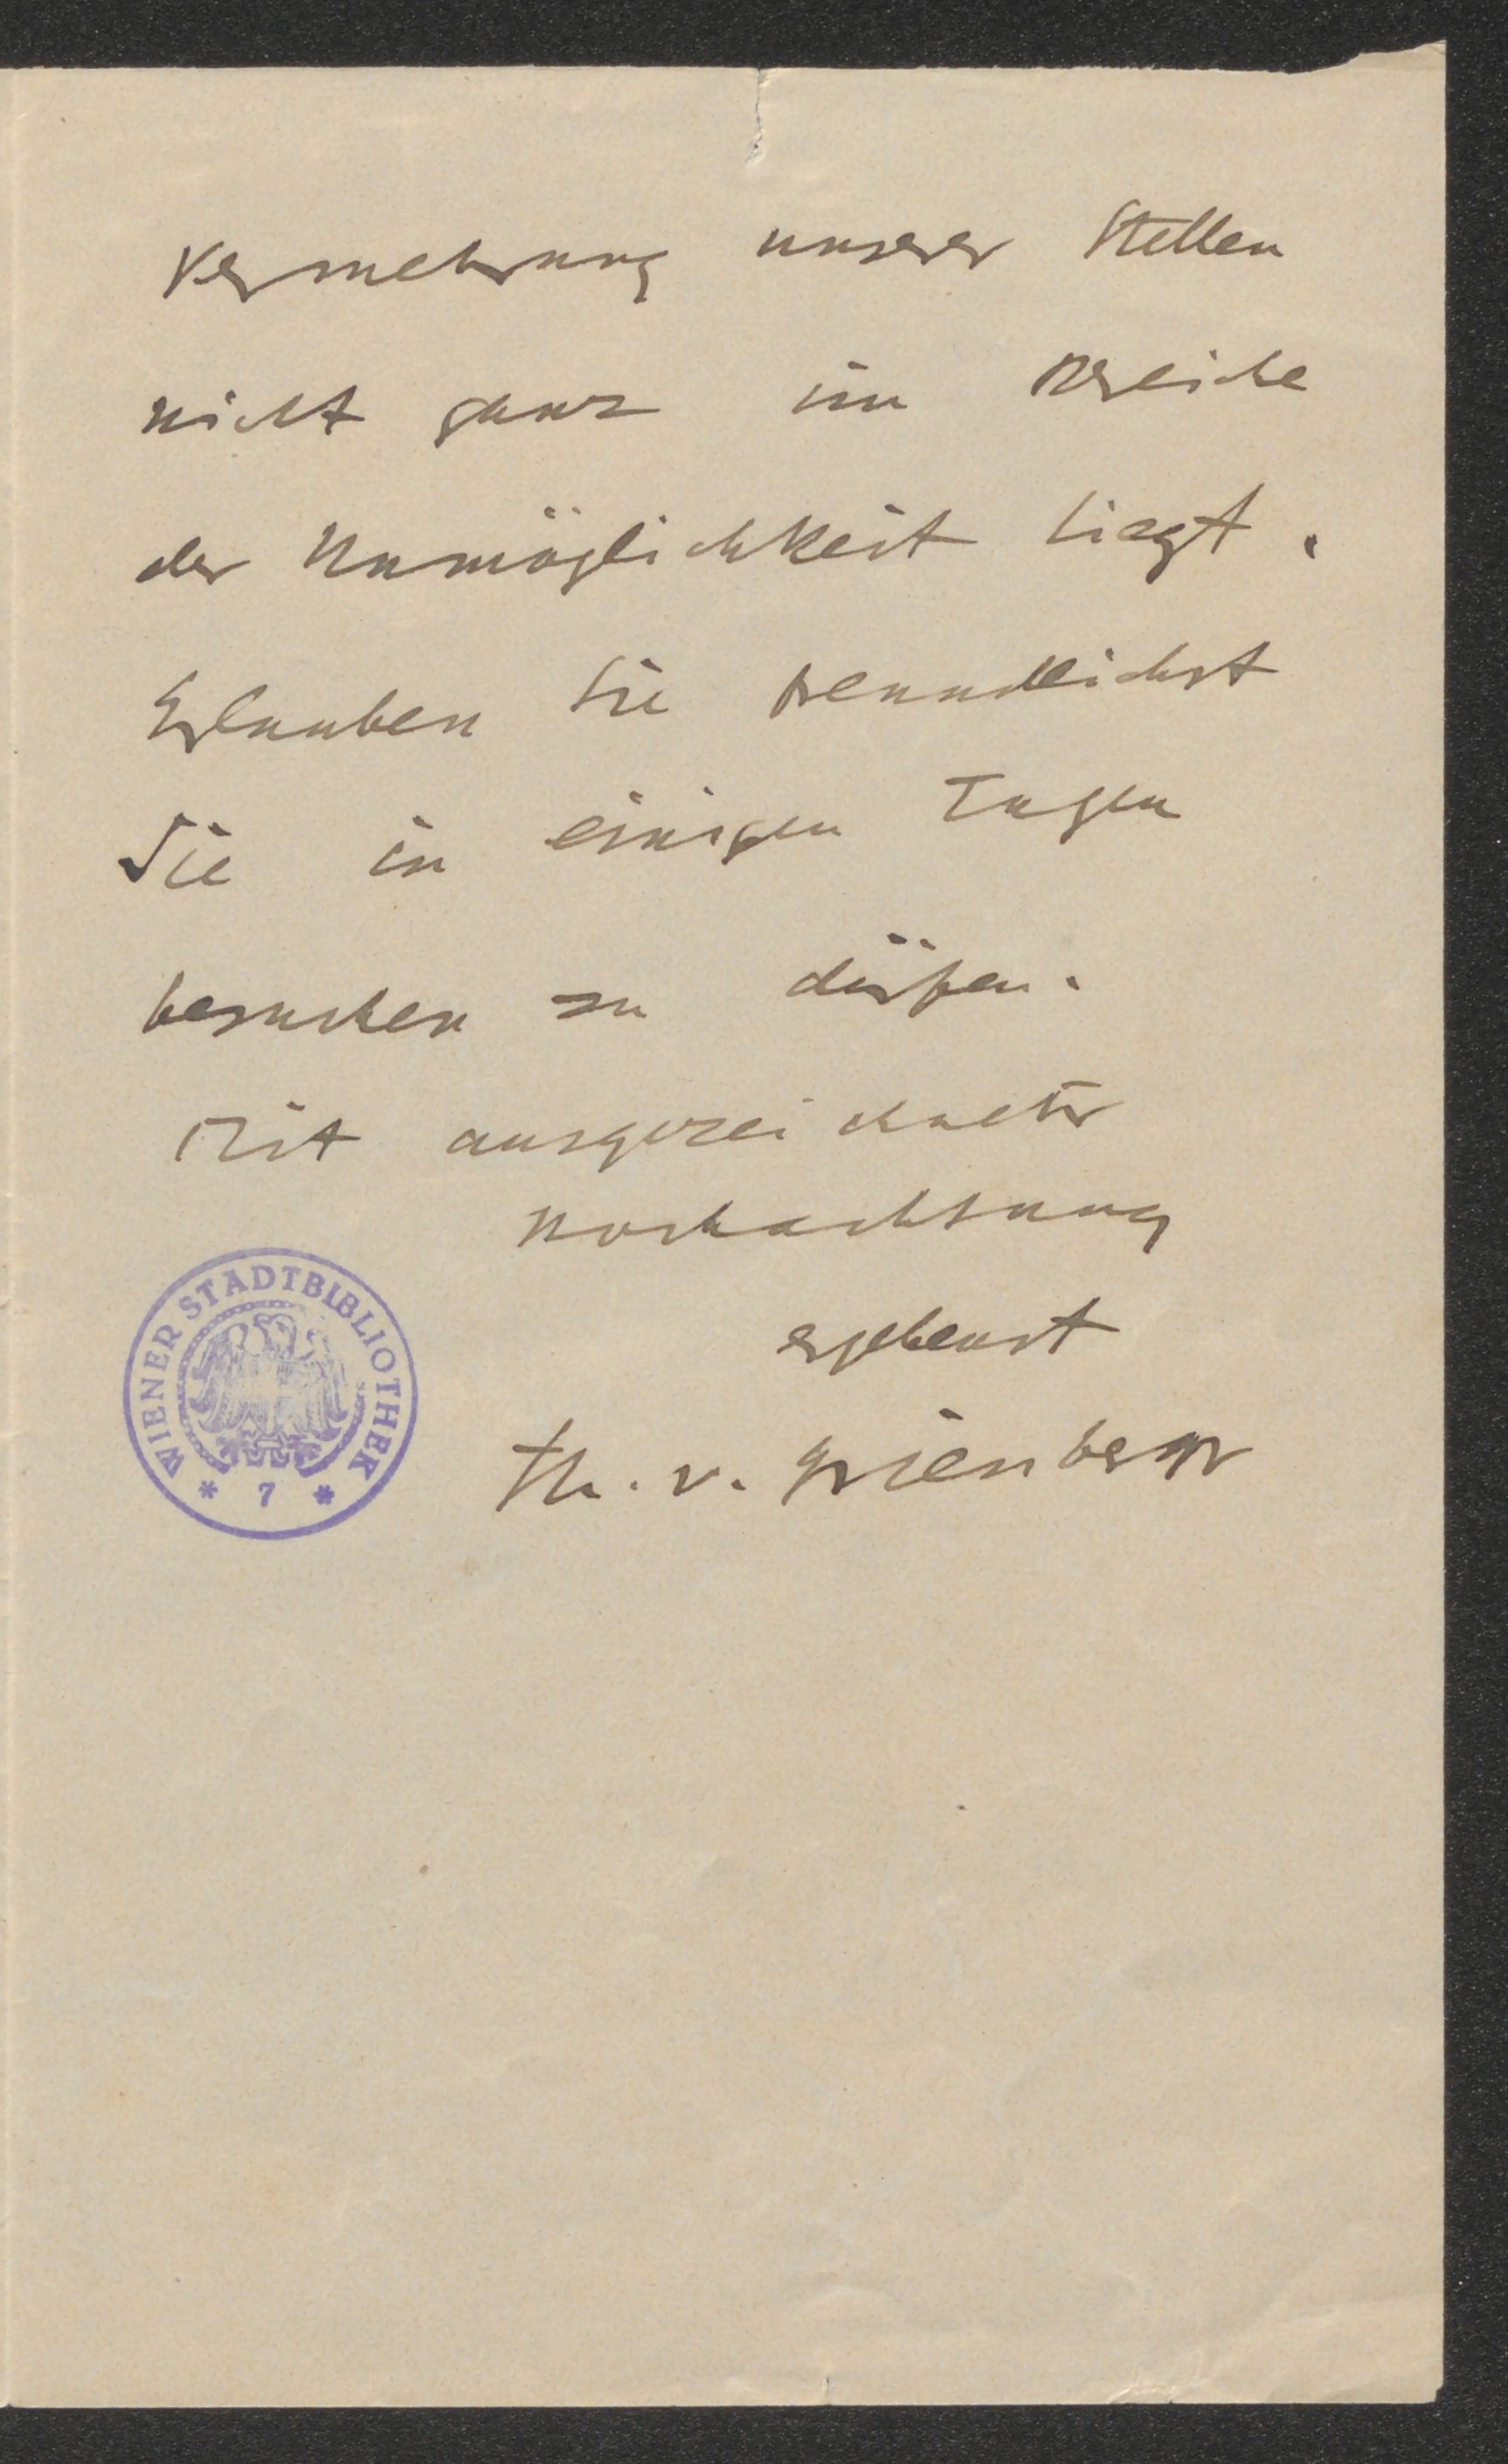 Vermehrung unserer Stellen
nicht ganz im Bereiche
der Unmöglichkeit liegt.
Erlauben Sie freundlichst
Sie in einigen Tagen
besuchen zu dürfen.
Mit ausgezeichneter
Hochachtung
ergebenst
Th. v. Grienberger
WIENER STADTBIBLIOTHEK
* 7 *